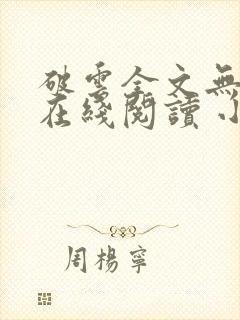 破雲全文無
在綫閱讀 小
周楊寧